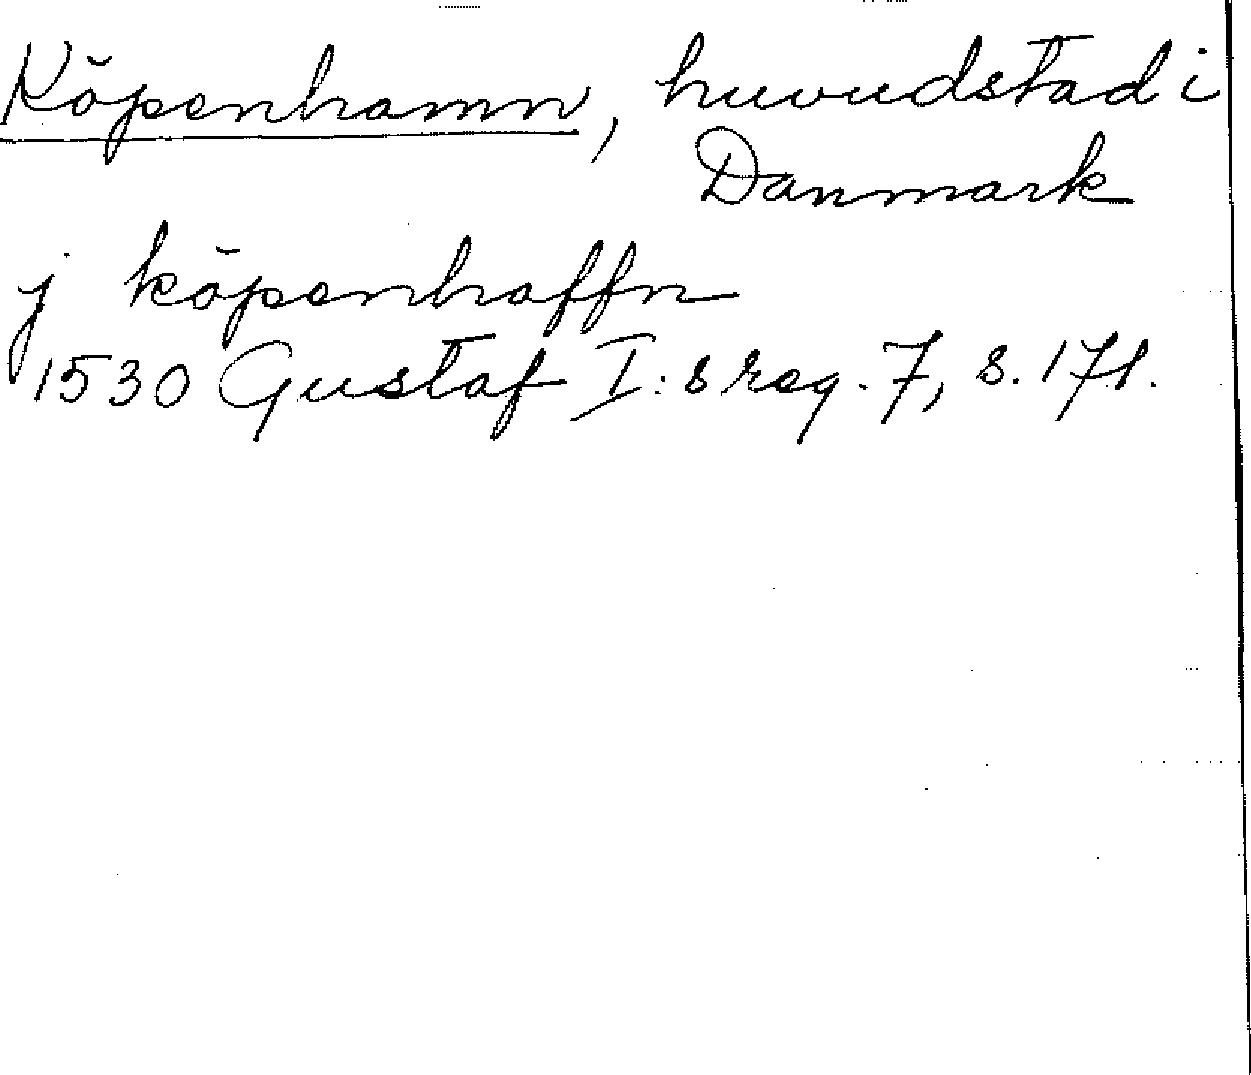 Köpenhamn, huvudstad i
Danmark
j köpenhaffn
1530 Gustaf I:s reg. 7, s. 171.